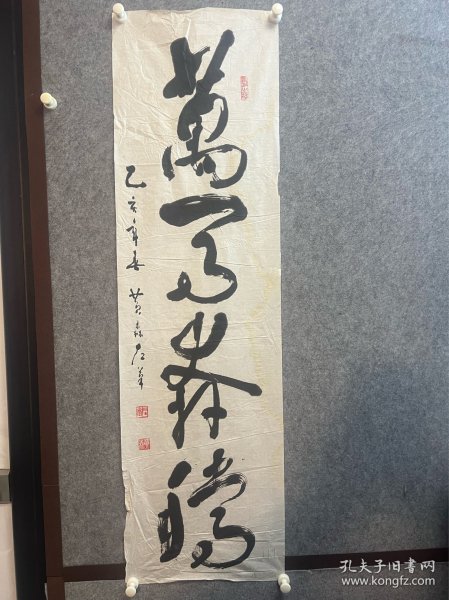 萬馬奔騰
乙亥年春 黄森
孔夫子旧书网
www.kongfz.com